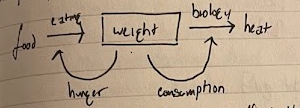 eating biology
food weight heat
hunger consumption